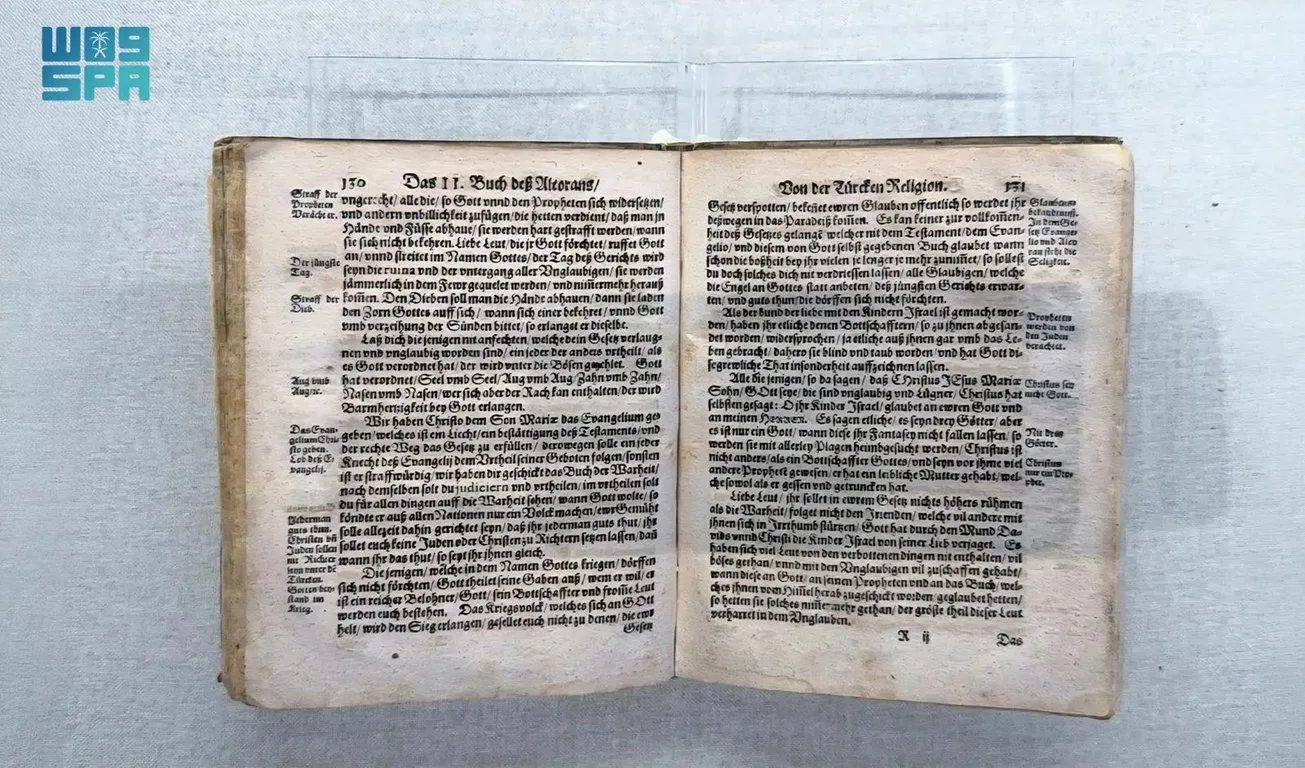 واس
SPA
130 Das II. Buch deß Alcorans/
Straff der
Propheten
Verächter.
vngerecht/ alle die/ so Gott vnnd den Propheten sich widersetzen/
vnd andern vnbillichkeit zufügen/ die hetten verdient/ daß man jn
Hände vnd Füsse abhaue/ sie werden hart gestrafft werden/ wann
sie sich nicht bekehren. Liebe Leut/ die jr Gott förchtet/ ruffet Gott
an/ vnnd streitet im Namen Gottes/ der Tag deß Gerichts wird
Der jüngste
Tag.
seyn die ruina vnd der vntergang aller Vnglaubigen/ sie werden
jämmerlich in dem Fewr gequelet werden/ vnd nim̃ermehr herauß
Straff der
Dieb.
kom̃en. Den Dieben soll man die Hände abhauen/ dann sie laden
den Zorn Gottes auff sich/ wann sich einer bekehret/ vnnd Gott
vmb verzeihung der Sünden bittet/ so erlanget er dieselbe.
Laß dich die jenigen nit anfechten/ welche dein Gesetz verlaug-
nen vnd vnglaubig worden sind/ ein jeder der anders vrtheilt/ als
es Gott verordnet hat/ der wird vnter die Bösen gezehlet. Gott
Aug vmb
Aug/ꝛc.
hat verordnet/ Seel vmb Seel/ Aug vmb Aug/ Zahn vmb Zahn/
Nasen vmb Nasen/ wer sich aber der Rach kan enthalten/ der wird
Barmhertzigkeit bey Gott erlangen.
Wir haben Christo dem Son Mariæ das Evangelium ge-
Das Evan-
gelium Chri-
sto geben.
Lob deß E-
vangelij.
geben/ welches ist ein Liecht/ ein bestättigung deß Testaments/ vnd
der rechte Weg das Gesetz zu erfüllen/ derowegen solle ein jeder
Knecht deß Evangelij dem Vrtheil seiner Geboten folgen/ sonsten
ist er straffwürdig/ wir haben dir geschickt das Buch der Warheit/
nach demselben solt du judiciern vnd vrtheilen/ im vrtheilen solt
du für allen dingen auff die Warheit sehen/ wann Gott wolte/ so
Jederman
guts thun.
Christen vn̄
Juden sollen
nit Richter
seyn vnter dē
Türcken.
Gottes bey-
stand im
Krieg.
köndte er auß allen Nationen nur ein Volck machen/ ewr Gemüht
solle allezeit dahin gerichtet seyn/ daß jhr jederman guts thut/ jhr
sollet euch keine Juden oder Christen zu Richtern setzen lassen/ dañ
wann jhr das thut/ so seyt jhr jhnen gleich.
Die jenigen/ welche in dem Namen Gottes kriegen/ dörffen
sich nicht förchten/ Gott theilet seine Gaben auß/ wem er wil/ er
ist ein reicher Belohner/ Gott/ sein Bottschaffter vnd from̃e Leut
werden euch bestehen. Das Kriegsvolck/ welches sich an GOtt
helt/ wird den Sieg erlangen/ gesellet euch nicht zu denen/ die ewr
Gesetz
Von der Türcken Religion. 131
Gesetz verspotten/ bekeñet ewren Glauben offentlich so werdet jhr
deßwegen in das Paradeiß kom̃en. Es kan keiner zur vollkom̃en-
heit deß Gesetzes gelangē welcher mit dem Testament/ dem Evan-
gelio/ vnd diesem von Gott selbst gegebenen Buch glaubet wann
schon die boßheit bey jhr vielen je lenger je mehr zunim̃et/ so sollest
du doch solches dich nit verdriessen lassen/ alle Glaubigen/ welche
die Engel an Gottes statt anbeten/ deß jüngsten Gerichts erwar-
ten/ vnd guts thun/ die dörffen sich nicht förchten.
Glaubens-
bekandtnuß.
In dem Ge-
setz Evange-
lio vnd Alco
ran steht die
Seligkeit.
Als der bund der liebe mit den Kindern Israel ist gemacht wor-
den/ haben jhr etliche denen Bottschafftern/ so zu jhnen abgesan-
det worden/ widersprochen/ ja etliche auß jhnen gar vmb das Le-
ben gebracht/ dahero sie blind und taub worden/ vnd hat Gott di-
se grewliche That insonderheit auffzeichnen lassen.
Propheten
werden von
den Juden
verachtet.
Alle die jenigen/ so da sagen/ daß CHristus JEsus Mariæ
Sohn/ GOtt seye/ die sind vnglaubig vnd Lügner/ Christus hat
selbsten gesagt: O jhr Kinder Israel/ glaubet an ewren Gott vnd
an meinen HERREN. Es sagen etliche/ es seyn drey Götter/ aber
es ist nur ein Gott/ wann diese jhr Fantasey nicht fallen lassen/ so
werden sie mit allerley Plagen heimbgesucht werden/ Christus ist
nicht anders/ als ein Bottschaffter Gottes/ vnd seyn vor jhme viel
andere Prophetē gewesen/ er hat ein leibliche Mutter gehabt/ wel-
che sowol als er gessen vnd getruncken hat.
Christus sey
nicht Gott.
Nit drey
Götter.
Christus
nur ein Pro-
phet.
Liebe Leut/ jhr sollet in ewrem Gesetz nichts höhers rühmen
als die Warheit/ folget nicht den Irrenden/ welche vil andere mit
jhnen sich in Irrthumb stürtzen/ Gott hat durch den Mund Da-
vids vnnd Christi die Kinder Israel von seiner Lieb verjaget. Es
haben sich viel Leut von den verbottenen dingen nit enthalten/ vil
böses gethan/ vnd mit den Vnglaubigen vil zuschaffen gehabt/
wann diese an Gott/ an seinen Propheten vnd an das Buch/ wel-
ches jhnen vom Him̃el herab zugeschickt worden/ geglaubet hetten/
so hetten sie solches nim̃ermehr gethan/ der gröste theil dieser Leut
verharret in dem Vnglauben.
R ij Das